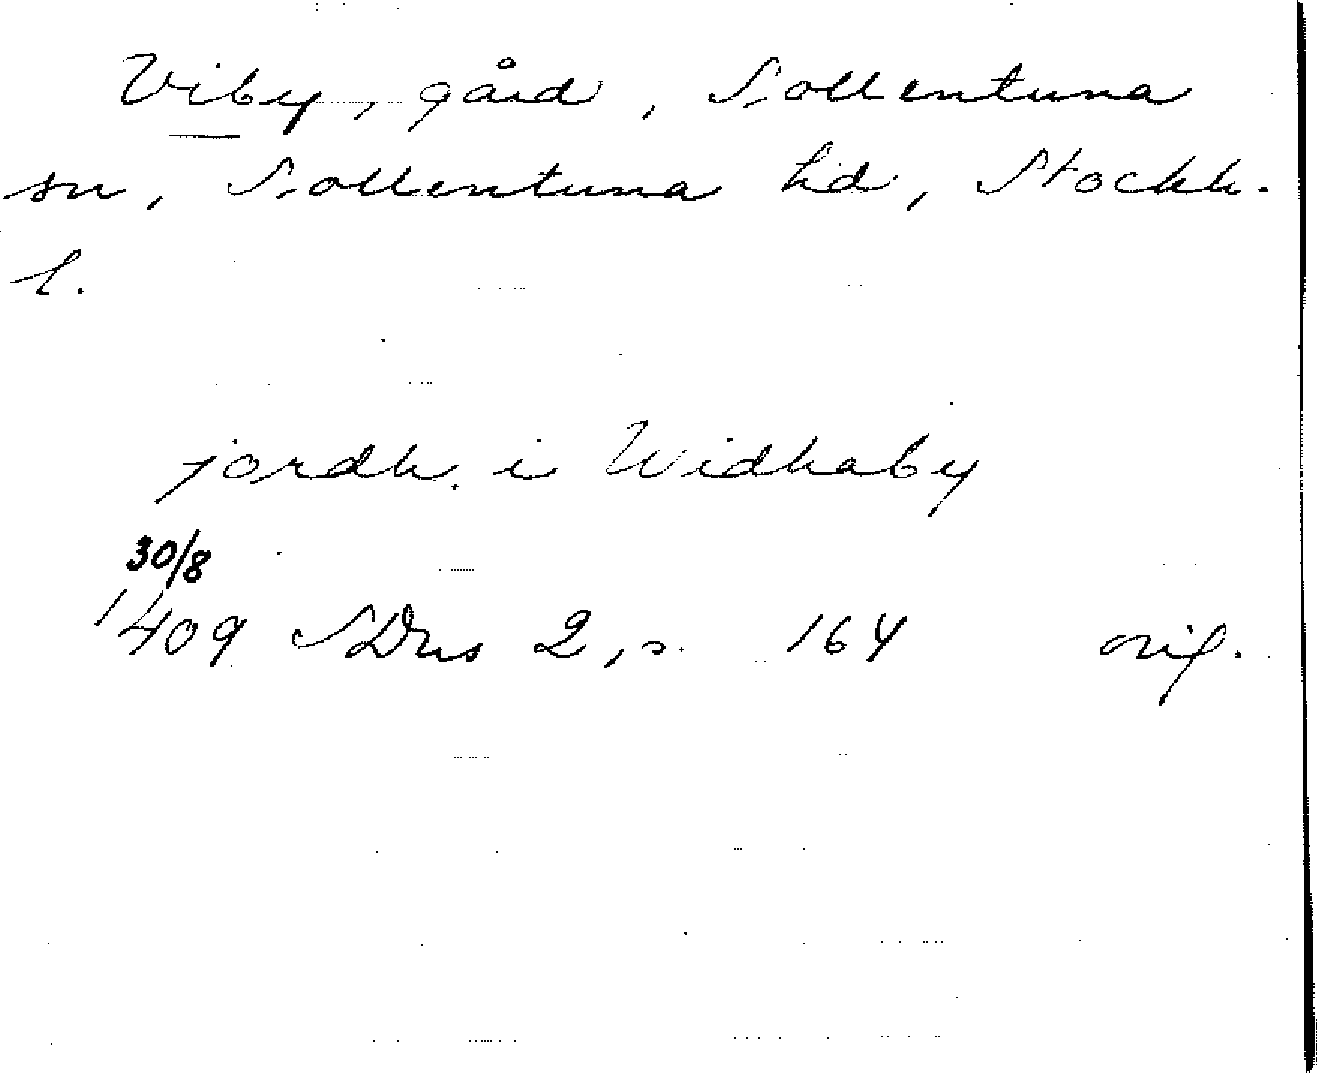 Viby, gård, Sollentuna
sn, Sollentuna hd, Stockh.
l.
jordh. i Widhaby
30/8
1409 SDns 2, s. 164 orig.